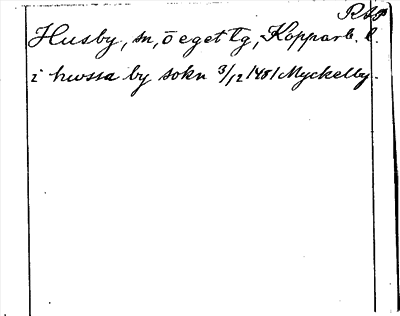 RAP
Husby, sn, ö eget tg, Kopparb. l.
i hwssa by sokn 3/12 1481 Myckelby.